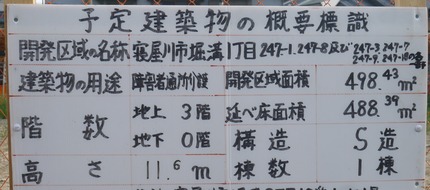 予定建築物の概要標識
開発区域の名称 寝屋川市堀溝1丁目247-1、247-8及び247-3、247-7
247-9、247-18の各一部
建築物の用途 障害者通所施設 開発区域面積 498.43m²
階数 地上 3階 延べ床面積 488.39m²
地下 0階 構造 S造
高さ 11.6m 棟数 1棟